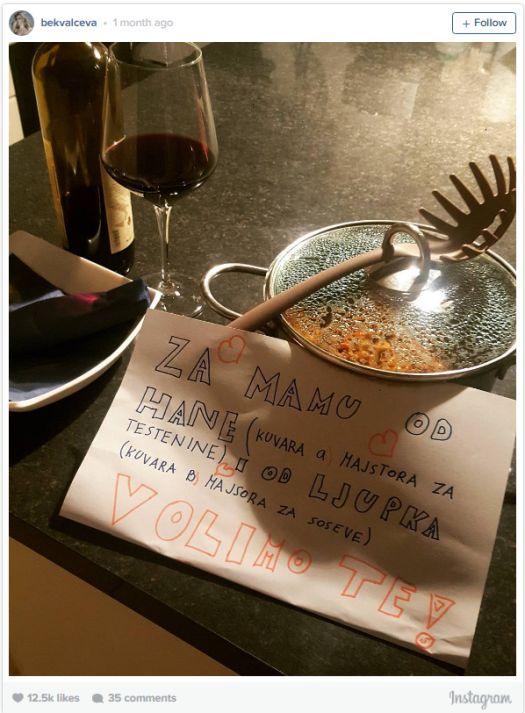 bekvalceva • 1 month ago
+ Follow
ZA MAMU OD
HANE (KUVARA a) MAJSTORA ZA
TESTENINE) I OD LJUPKA
(KUVARA B) MAJSORA ZA SOSEVE)
VOLIMO TE!
12.5k likes 35 comments
Instagram